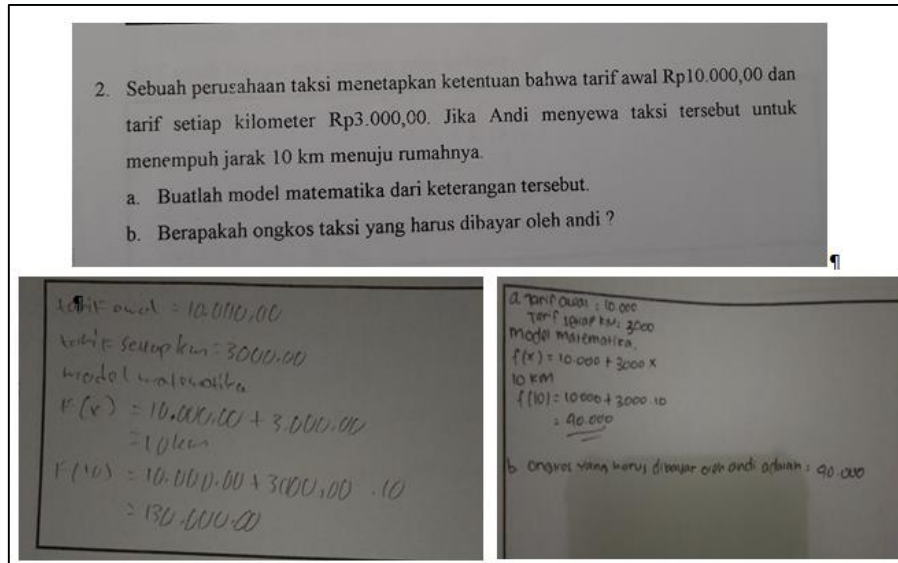 2. Sebuah perusahaan taksi menetapkan ketentuan bahwa tarif awal Rp10.000,00 dan
tarif setiap kilometer Rp3.000,00. Jika Andi menyewa taksi tersebut untuk
menempuh jarak 10 km menuju rumahnya.
a. Buatlah model matematika dari keterangan tersebut.
b. Berapakah ongkos taksi yang harus dibayar oleh andi ?
¶
tarif awal = 10.000,00
tarif setiap km = 3000.00
model matematika
F(x) = 10.000.00 + 3.000.00
= 10 km
F(10) = 10.000.00 + 3000,00 . 10
= 130.000.00
a. Tarif awal : 10.000
Tarif setiap km : 3000
Model matematika.
f(x) = 10.000 + 3000 x
10 KM
f(10) = 10000 + 3000 . 10
= 40.000
b. ongkos yang harus dibayar oleh andi adalah : 40.000